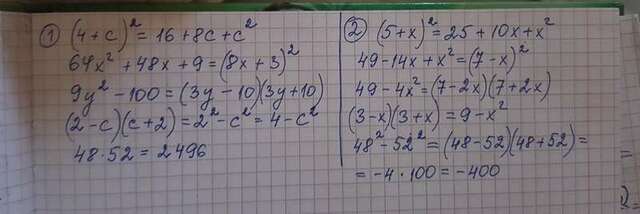 ① (4+c)² = 16+8c+c²
64x² +48x +9 = (8x+3)²
9y² -100 = (3y-10)(3y+10)
(2-c)(c+2) = 2²-c² = 4-c²
48·52 = 2496
② (5+x)² = 25+10x+x²
49-14x+x² = (7-x)²
49-4x² = (7-2x)(7+2x)
(3-x)(3+x) = 9-x²
48²-52² = (48-52)(48+52) =
= -4·100 = -400